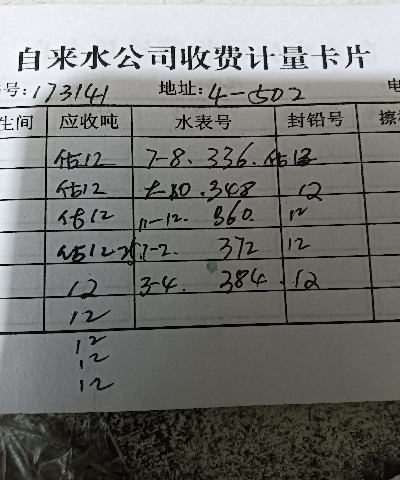 自来水公司收费计量卡片
号:173141 地址:4-502 电
生间 应收吨 水表号 封铅号 擦
估12 7-8. 336. 估12
估12 348 12
估12 11-12. 360. 12
估12 1-2. 372 12
12 3-4. 384. 12
12
12
12
12